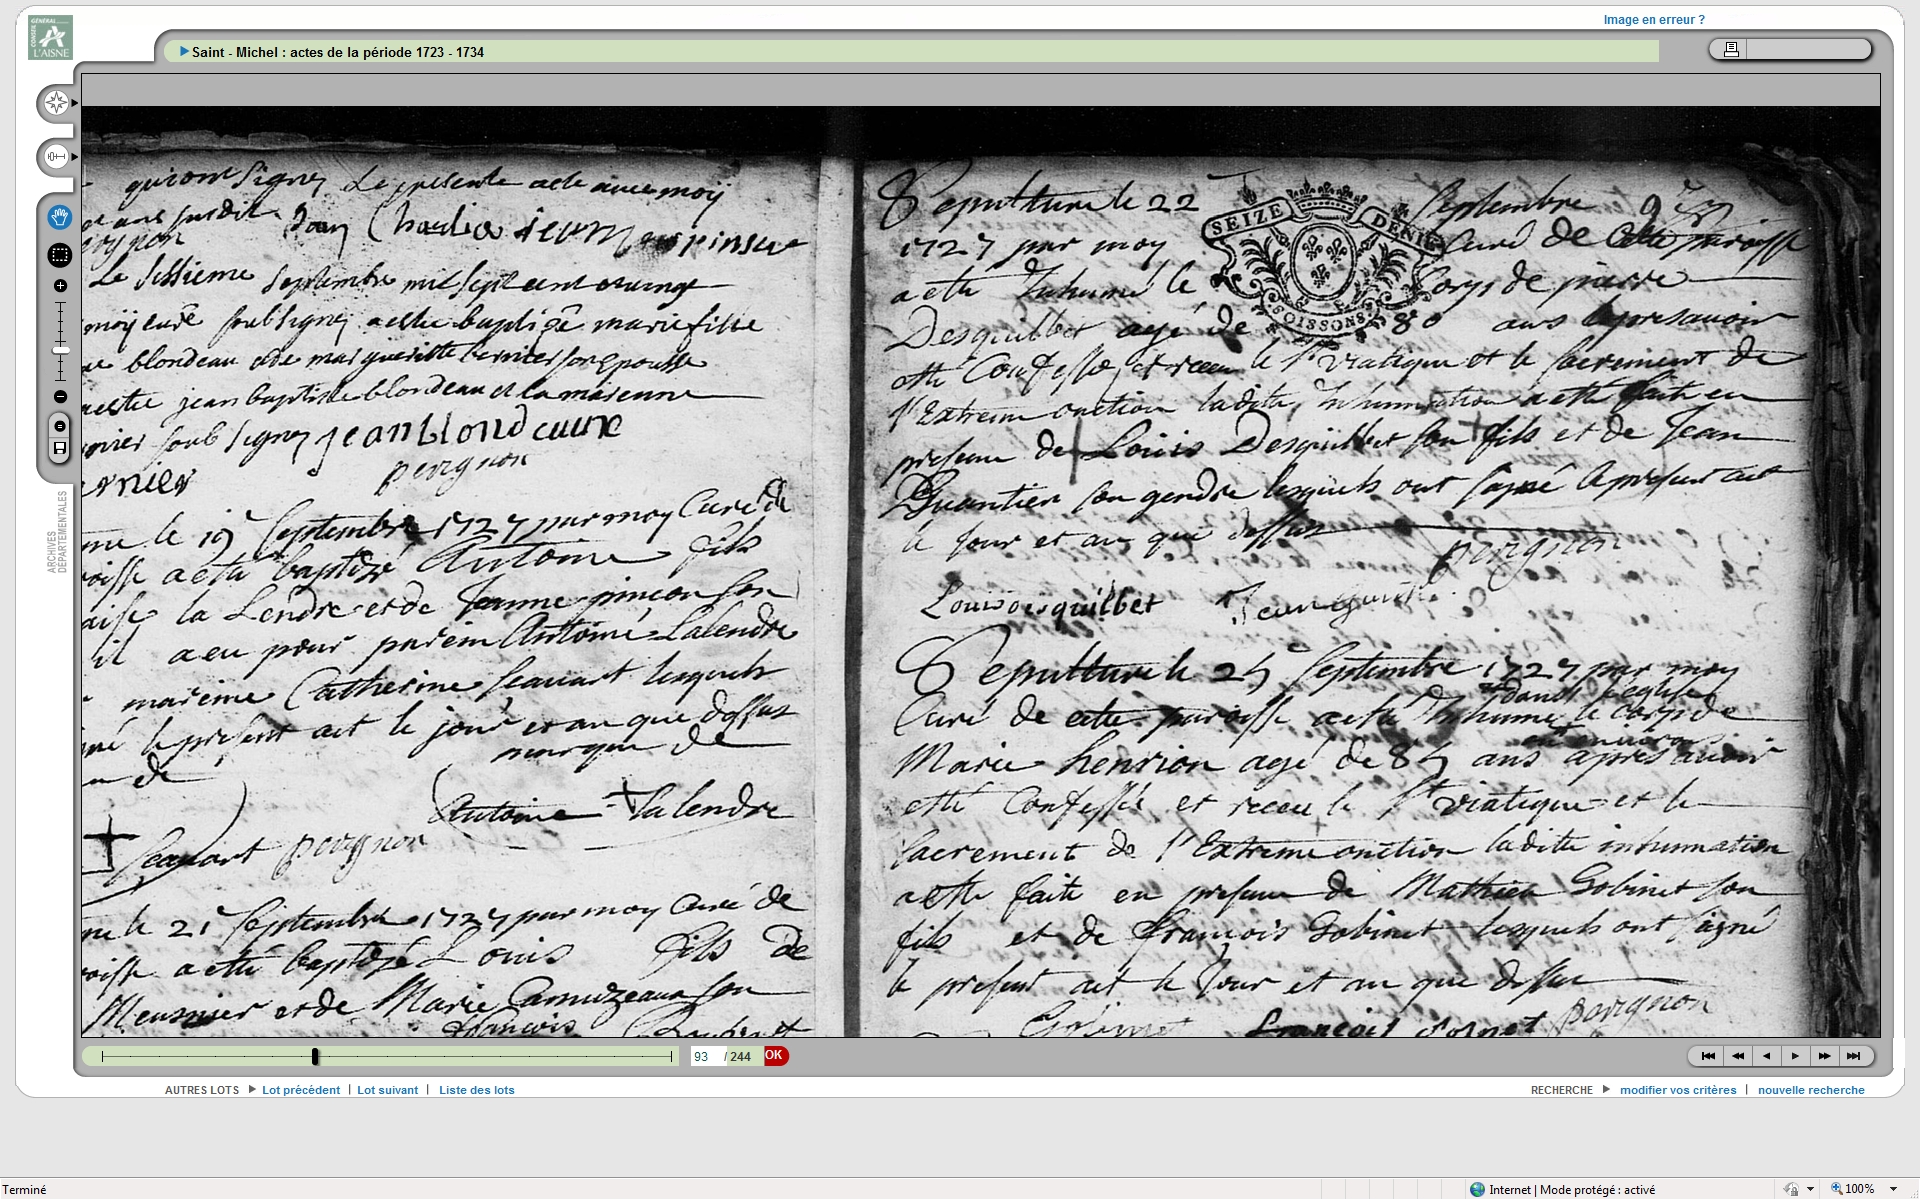 Image en erreur ?
GENERAL
CONSEIL
L'AISNE
Saint - Michel : actes de la période 1723 - 1734
ARCHIVES
DÉPARTEMENTALES
signez Le presente acte avec moÿ
susdit Charlier
Le sissieme septembre mil sept cent
moÿ curé soubsigné a este baptisé marie fille
blondeau et de margueritte son Epousse
jean baptiste blondeau et la
soub signez jean blondeaux
pevignon
le 19e Septembre 1727 par moy Curé de
a este baptizé Antoine fils
la Lendre et de Jeanne pincon son
il a eu pour parein Antoine Lalendre
mareine Catherine lesquels
le present act le jour et an que dessus
marque de
de
Antoine lalendre
pevignon
le 21e Septembre 1727 par moy Curé de
a esté baptizé Louis fils de
Meusnier et de Marie Camuzeaux son
François
Sepulture le 22 Septembre
1727 par moy Curé de cette paroisse
a esté Inhumé le Corps de pierre
SEIZE DENIE
SOISSONS
Desquilbet agé de 80 ans apres avoir
esté Confessé et receu le St viatique et le sacrement de
l'Extreme onction ladite Inhumation a esté faite en
presence de Louis Desquilbet son fils et de Jean
Quantier son gendre lesquels ont signé le present act
le jour et an que dessus
pevignon
Louis desquilbet Jean
Sepulture le 24 Septembre 1727 par moy
dans l'eglise
Curé de cette paroisse a esté Inhumé le corps de
environ
Marie henrion agé de 84 ans apres avoir
esté Confessée et receu le St viatique et le
sacrement de l'Extreme onction ladite inhumation
a esté faite en presence de Mathieu Gobinet son
fils et de François Gobinet lesquels ont signé
le present act le Jour et an que dessus
Gobinet François Gobinet pevignon
93 / 244 OK
AUTRES LOTS Lot précédent | Lot suivant | Liste des lots
RECHERCHE modifier vos critères | nouvelle recherche
Terminé
Internet | Mode protégé : activé
100%